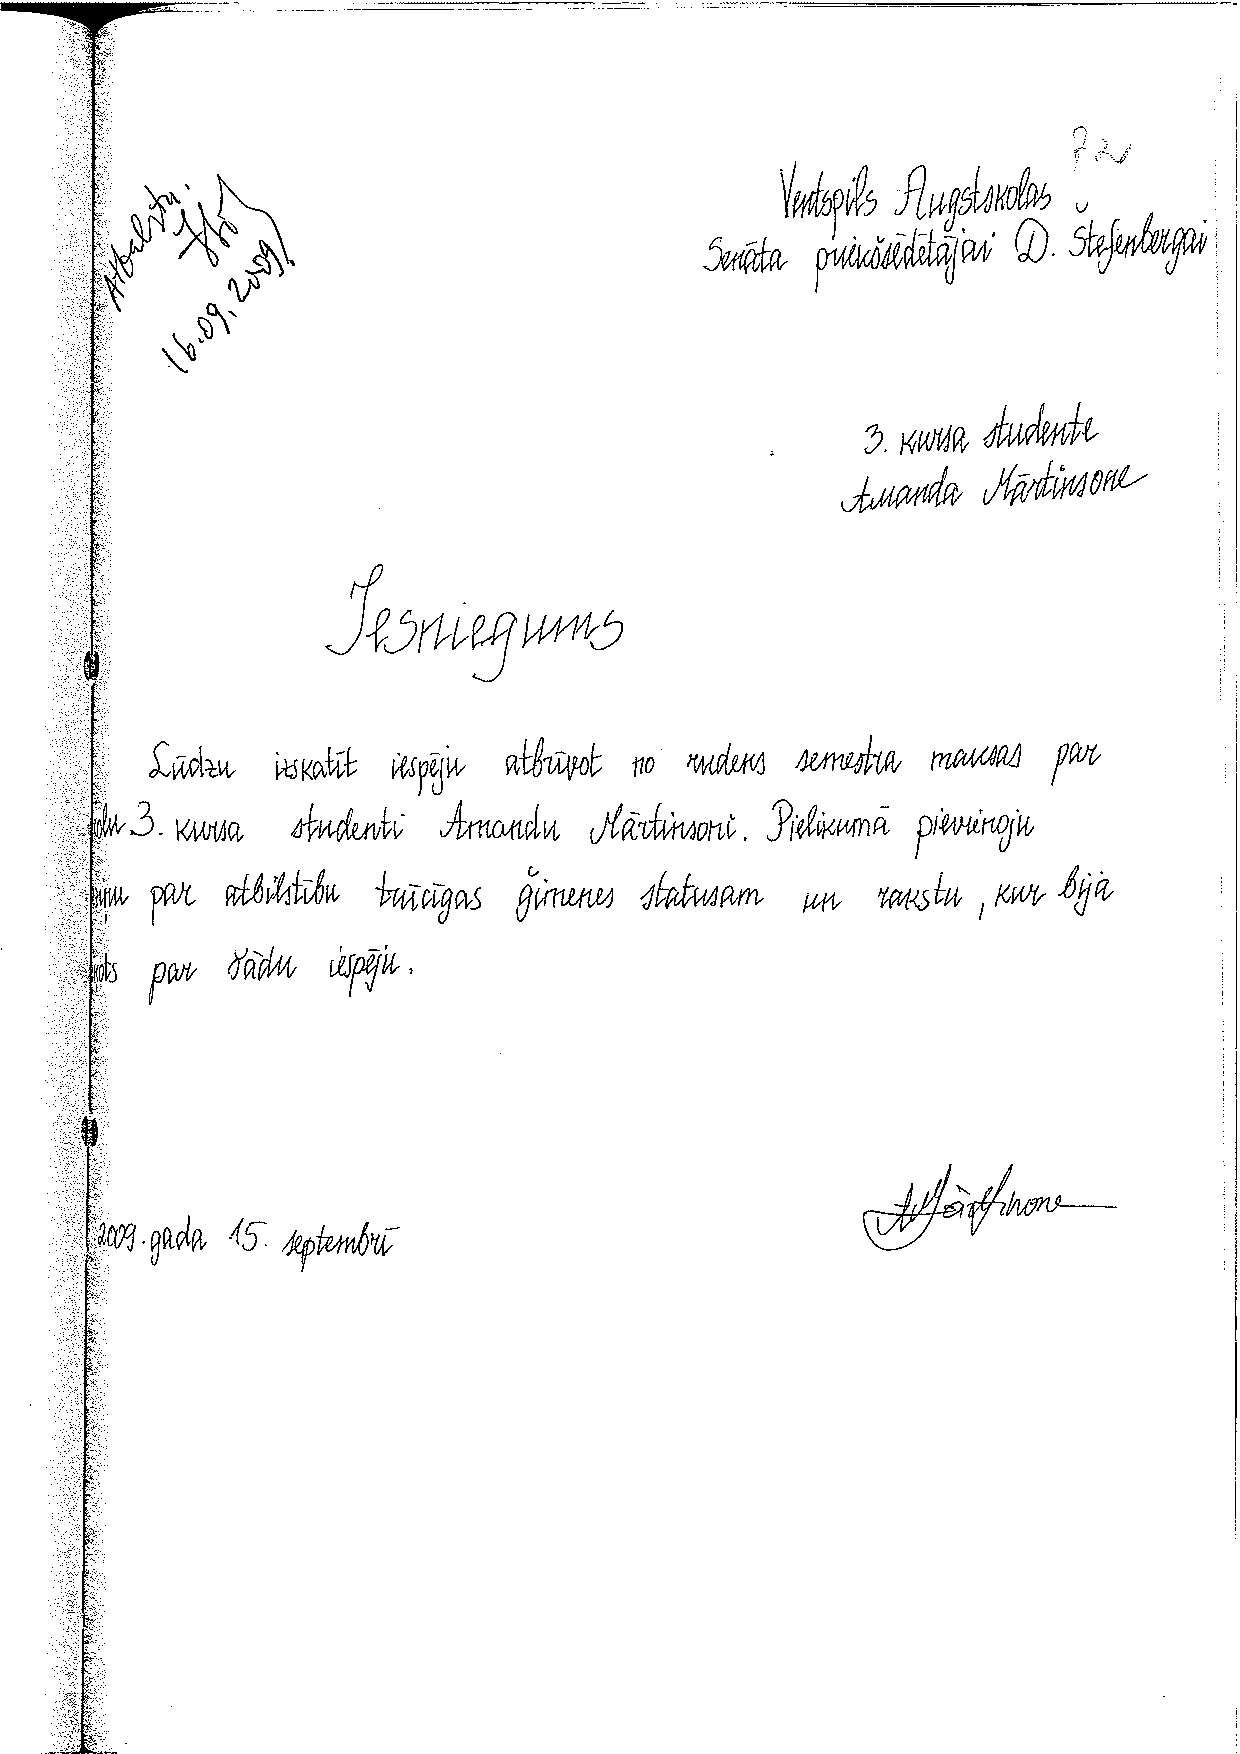 Atbalstu.
16.09.2009
72
Ventspils Augstskolas
Senāta priekšsēdētājai D. Štefenbergai
3. kursa studente
Amanda Mārtinsone
Iesniegums
Lūdzu izskatīt iespēju atbrīvot no rudens semestra maksas par
3. kursa studenti Amandu Mārtinsoni. Pielikumā pievienoju
par atbilstību trūcīgas ģimenes statusam un rakstu, kur bija
par šādu iespēju.
2009. gada 15. septembrī
AMārtinsone